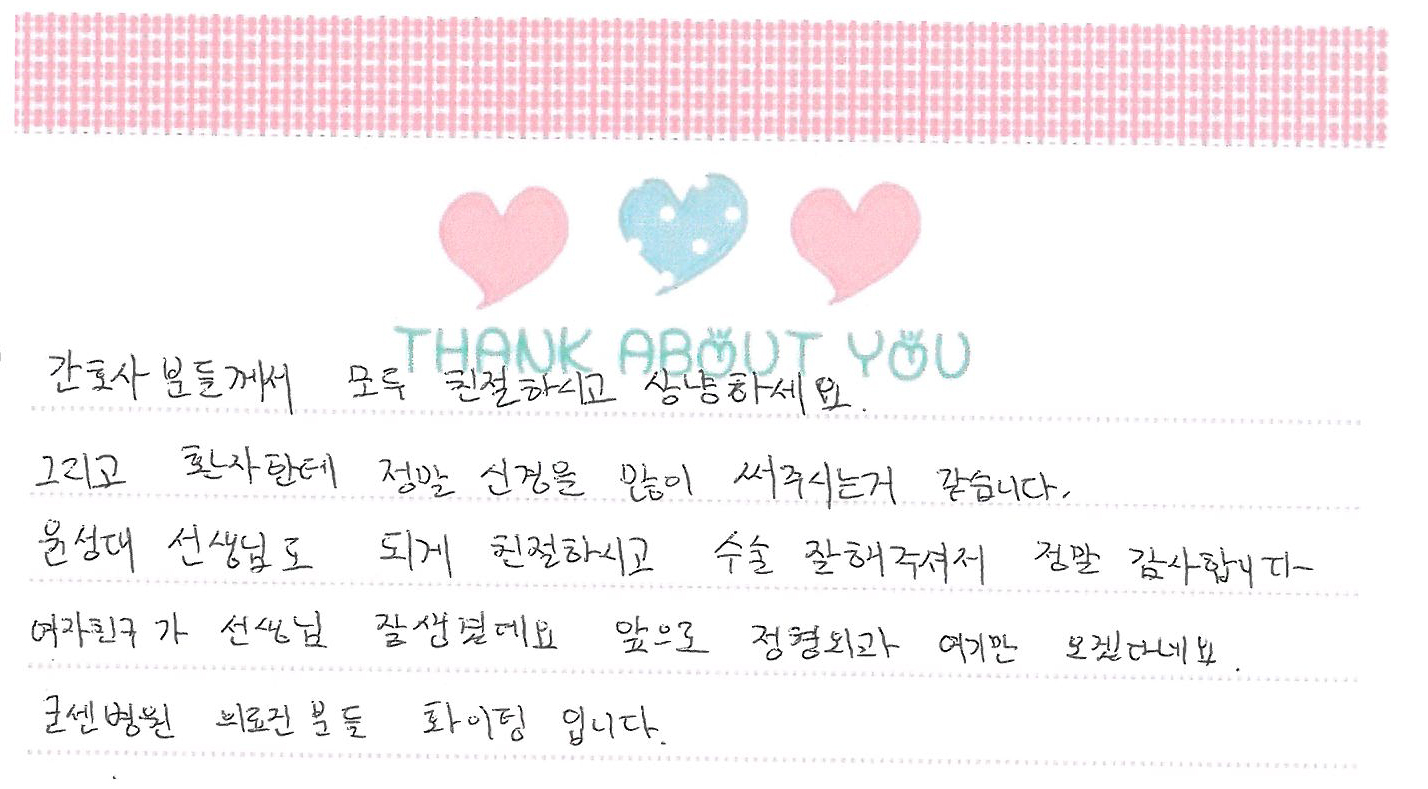 THANK ABOUT YOU
간호사분들께서 모두 친절하시고 상냥하세요.
그리고 환자한테 정말 신경을 많이 써주시는거 같습니다.
윤성대 선생님도 되게 친절하시고 수술 잘해주셔서 정말 감사합니다~
여자친구가 선생님 잘생겼데요 앞으로 정형외과 여기만 오겠다네요.
굳센병원 의료진분들 화이팅 입니다.